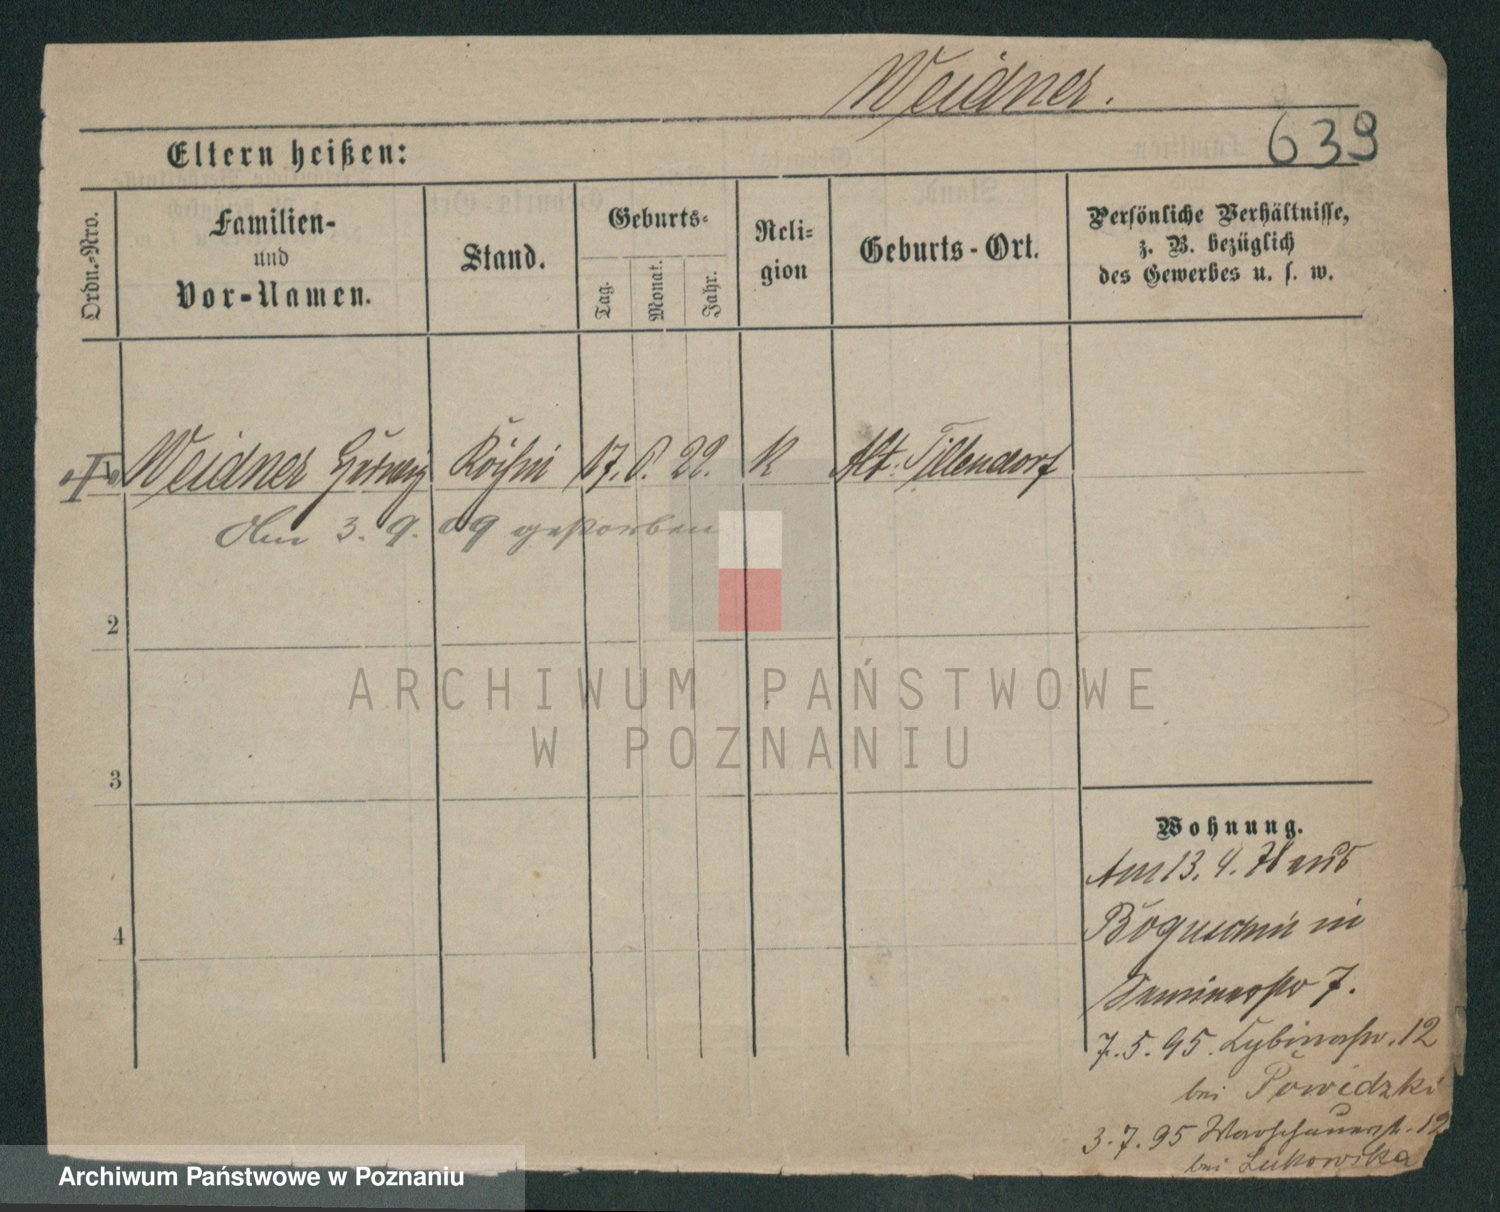 Weidner.
639
Eltern heißen:
Ordn.-Nro.
Familien-
und
Vor-Namen.
Stand.
Geburts-
Tag.
Monat.
Jahr.
Reli-
gion
Geburts-Ort.
Persönliche Verhältnisse,
z. B. bezüglich
des Gewerbes u. s. w.
1 Weidner Hedwig Köchin 17. 8. 22. K Alt. Tillendorf
Am 3. 9. 09 gestorben
2
3
4
Wohnung.
Am 13. 4. 78 aus
Boguschin in
7.
7. 5. 95. Lybinastr. 12
bei Powidzki
3. 7. 95 Warschauerstr. 12
bei Lukowska
ARCHIWUM PAŃSTWOWE
W POZNANIU
Archiwum Państwowe w Poznaniu